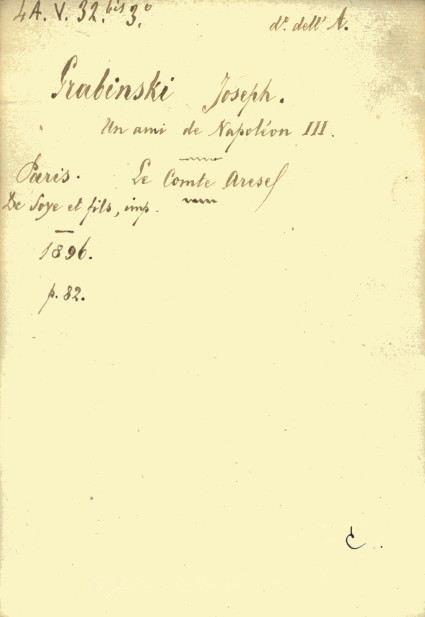 4A. V. 32.bis 3.º
d.º dell' A.
Grabinski Joseph.
Un ami de Napoléon III.
Le Comte Arese
Paris.
De Soye et fils, imp.
1896.
p. 82.
C